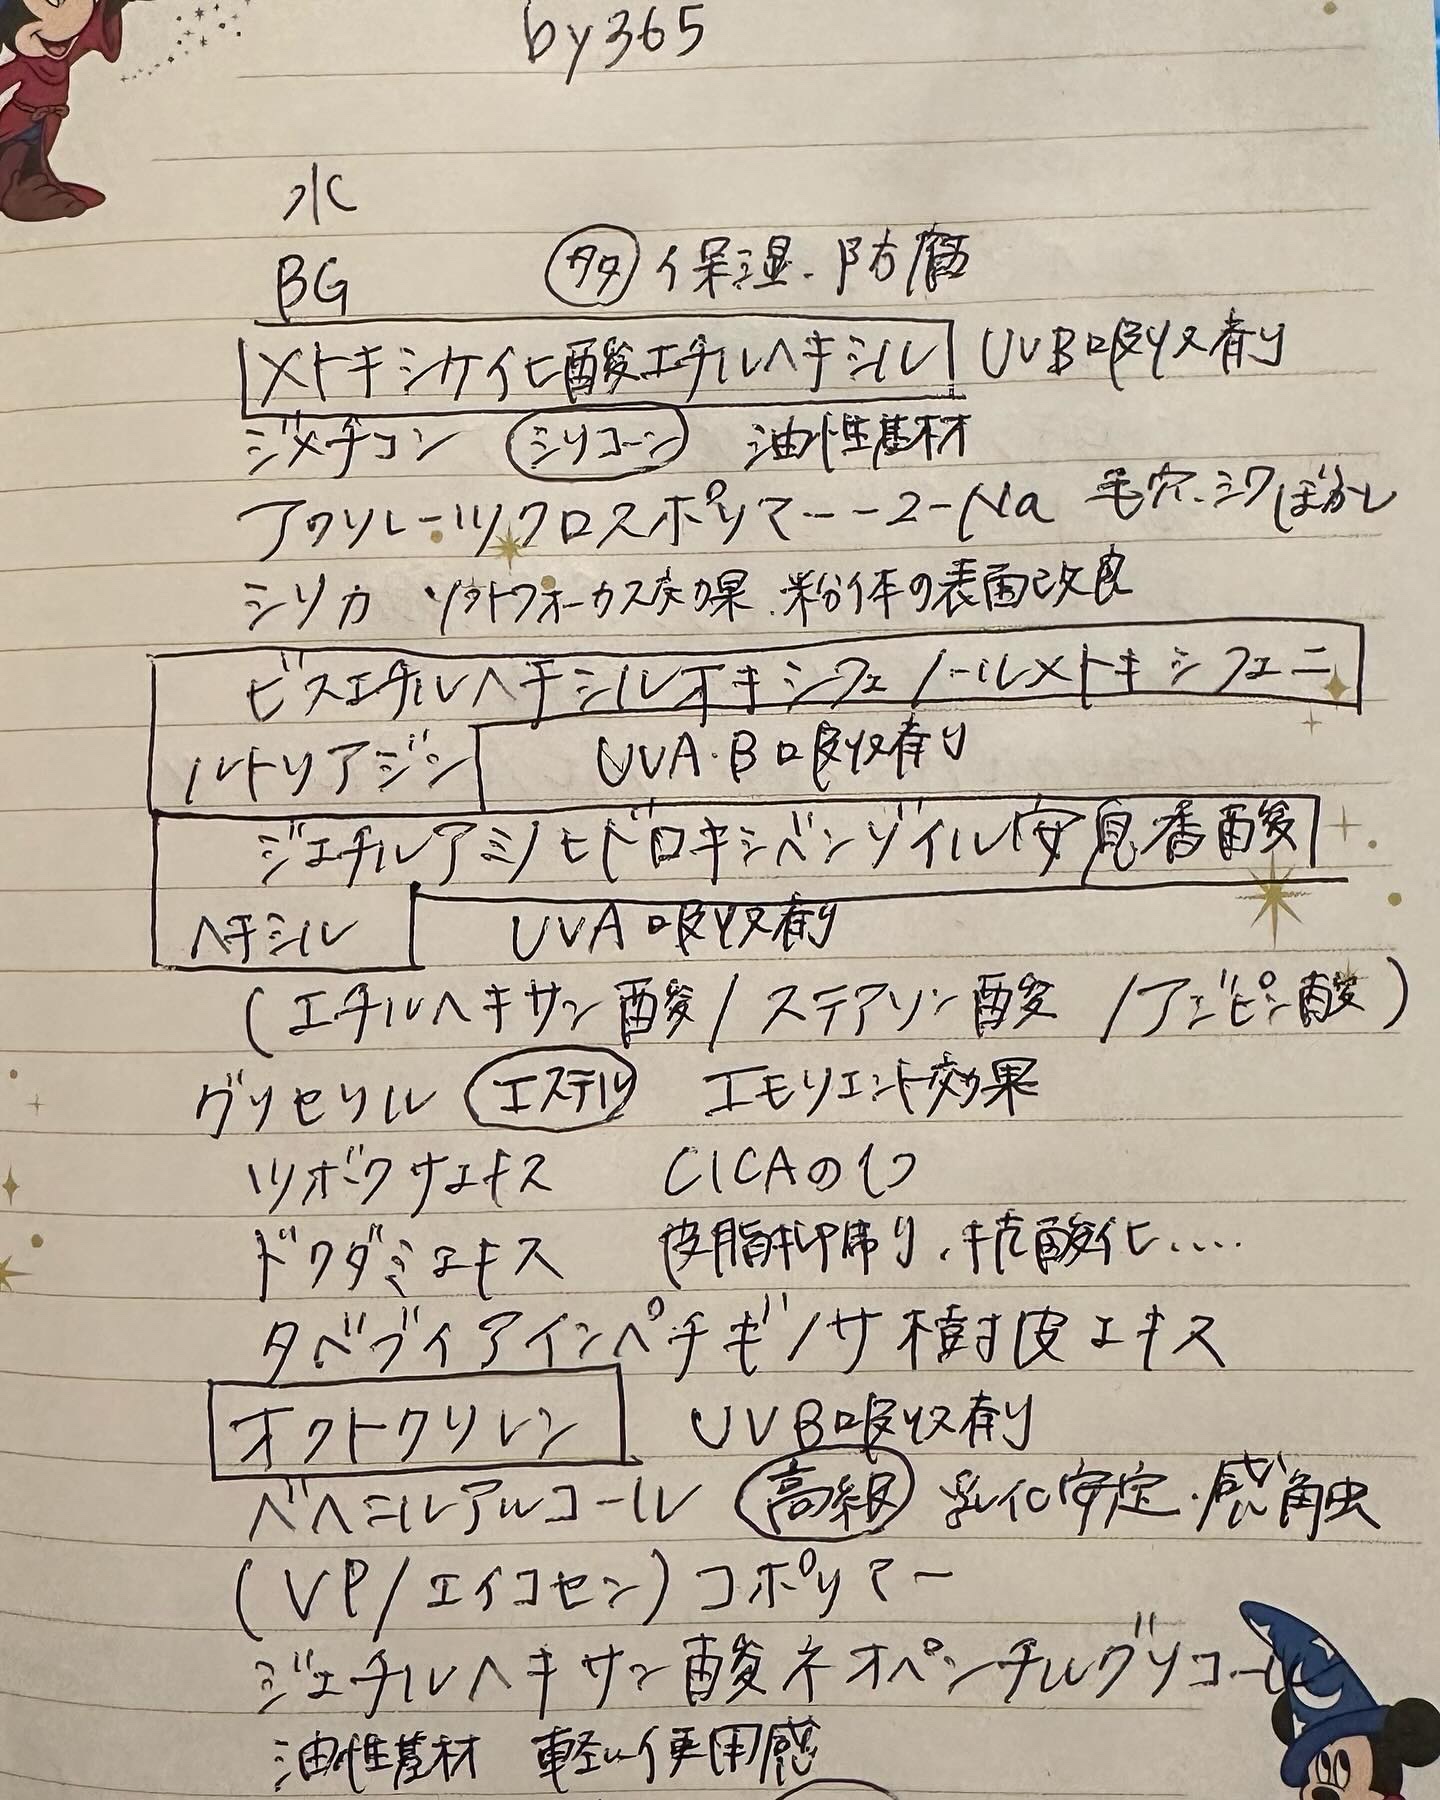 by365
水
BG 多 保湿.防腐
メトキシケイヒ酸エチルヘキシル UVB吸収剤
ジメチコン シリコーン 油性基材
アクリレーツクロスポリマー-2-Na 毛穴.シワぼかし
シリカ ソフトフォーカス効果.粉体の表面改良
ビスエチルヘキシルオキシフェノールメトキシフェニ
ルトリアジン UVA・B吸収剤
ジエチルアミノヒドロキシベンゾイル安息香酸
ヘキシル UVA吸収剤
(エチルヘキサン酸/ステアリン酸/アジピン酸)
グリセリル エステル エモリエント効果
ツボクサエキス CICAのもつ
ドクダミエキス 皮脂抑制、抗酸化....
タベブイアインペチギノサ樹皮エキス
オクトクリレン UVB吸収剤
ベヘニルアルコール 高級 乳化安定.感触
(VP/エイコセン)コポリマー
ジエチルヘキサン酸ネオペンチルグリコール
油性基材 軽い使用感